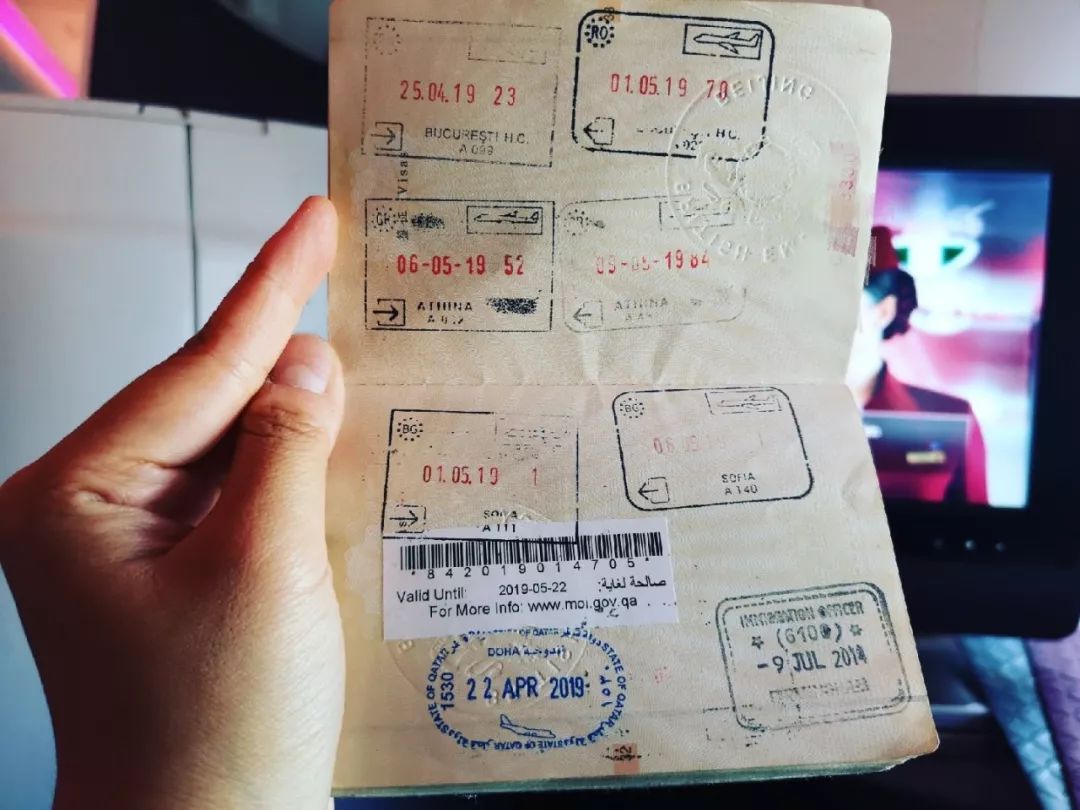 RO
25.04.19 23
BUCUREŞTI H.C.
A 099
Visas
01.05.19 70
H.C.
BEIJING
BRITISH EM
GR
06-05-19 52
ATHINA
09-05-19 84
ATHINA
BG
01.05.19 1
SOFIA
A 111
BG
SOFIA
A 140
*842019014705*
Valid Until: 2019-05-22 صالحة لغاية:
For More Info: www.moi.gov.qa
STATE OF QATAR دولة قطر
DOHA الدوحة
1530
22 APR 2019
STATE OF QATAR دولة قطر
IMMIGRATION OFFICER
-9 JUL 2014